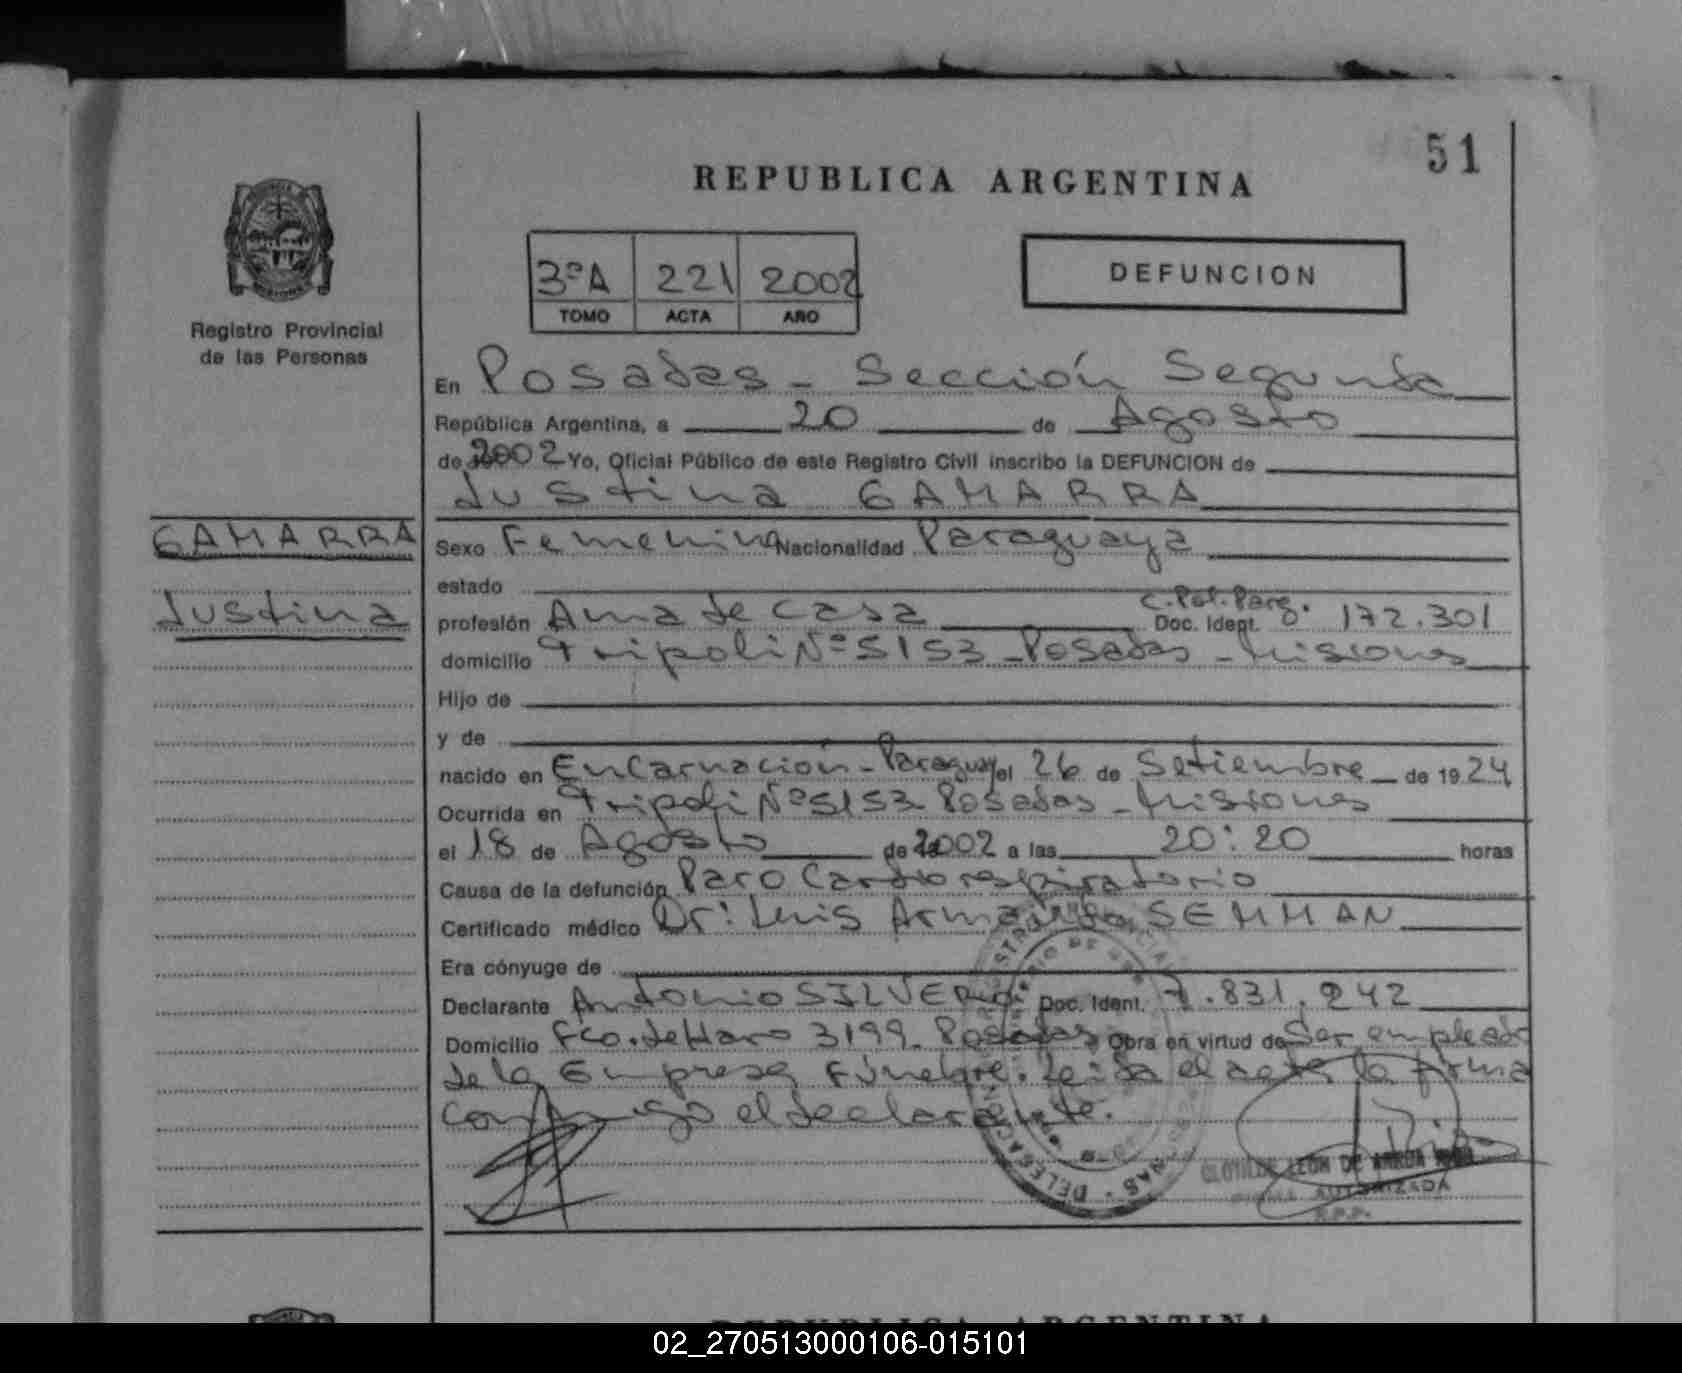 51
REPUBLICA ARGENTINA
3ºA 221 2002
TOMO ACTA AÑO
DEFUNCION
Registro Provincial
de las Personas
En Posadas - Sección Segunda
República Argentina, a 20 de Agosto
de 2002 Yo, Oficial Público de este Registro Civil inscribo la DEFUNCION de
Justina GAMARRA
GAMARRA
Justina
Sexo Femenino Nacionalidad Paraguaya
estado
profesión Ama de casa C.Pol.Parg. Doc. Ident. 172.301
domicilio Tripoli Nº 5153 - Posadas - Misiones
Hijo de
y de
nacido en Encarnación - Paraguay el 26 de Setiembre de 1924
Ocurrida en Tripoli Nº 5153 Posadas - Misiones
el 18 de Agosto de 2002 a las 20:20 horas
Causa de la defunción Paro Cardiorespiratorio
Certificado médico Dr: Luis Armando SEMMAN
Era cónyuge de
Declarante Antonio SILVERO Doc. Ident. 7.831.242
Domicilio Fco. de Haro 3199 - Posadas Obra en virtud de Ser empleado
de la Empresa Fúnebre. Leída el acta, la firma
conmigo el declarante.
LEON DE
AUTORIZADA
R.P.P.
REPUBLICA ARGENTINA
02_270513000106-015101